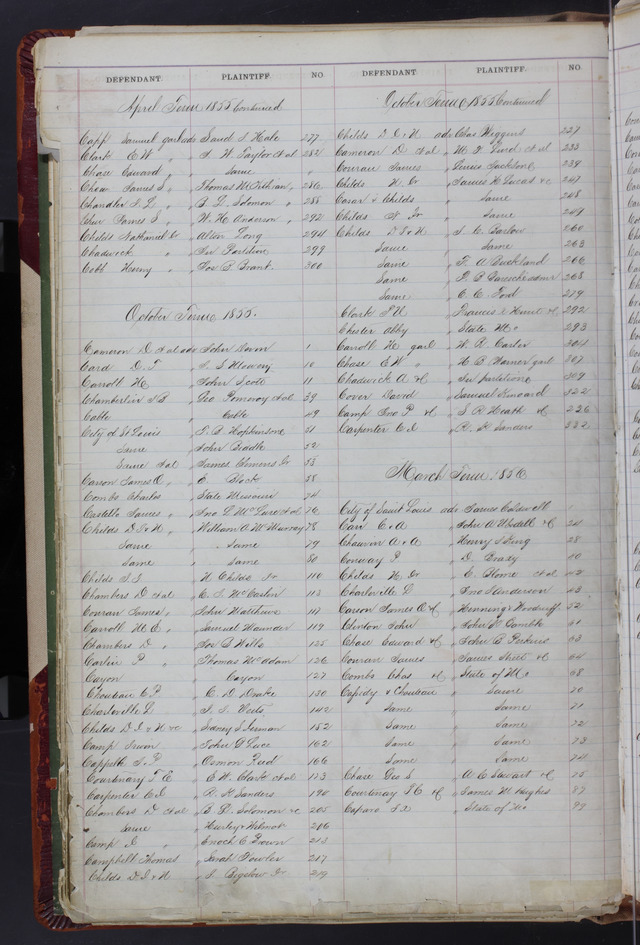 DEFENDANT. PLAINTIFF. NO.
April Term 1855 Continued
Capp Samuel garls ads David S. Hale 277
Clark E W " N. W. Taylor et al 282
Chase Edward " Same "
Chew James S. " Thomas McKithian " 286
Chandler J. L. " B. L. Solomon " 288
Chew James S. " W. H. Anderson " 292
Childs Nathaniel Jr Alton Long 294
Chadwick " Ier Partition 299
Cobb Henry " Jos. B. Grant 300
October Term 1855.
Cameron D et al ads John Dorm 1
Card D. T. " S. S. Mowery 10
Carroll H. " John Scott 11
Chamberlin N B Geo. Pomeroy et al 39
Cable " Cable 49
City of St Louis " S. B. Hopkinsone 51
Same John Biddle 52
Same et al " James Clemens Jr 55
Carson James O. " E Block 58
Combs Charles State Missouri 74
Castello James " Jno. L. McLane et al 76
Childs D. I & N " William A. McMurray 78
Same " Same 79
Same " Same 80
Childs S. S. N. Childs Jr 110
Chambers D et al C. S. McCaslin 113
Conran James " John Matthews 117
Carroll M. E. " Samuel Maunder 119
Chambers D. " Jos. S. Wells 125
Carlin P. " Thomas McAdam 126
Cayon Cayon 127
Chouteau E. P. " C. D. Drake 130
Charleville L. " S. S. Watts 142
Childs D. I. & N &c Sidney S. Lerman 152
Camp Irwin " John G. Luce 162
Cappell S. P. " Osmon Reed 166
Courtenay T E " E. W. Clark et al 173
Carpenter C. I. " R. H. Sanders 190
Chambers D et al " B. D. Solomon &c 205
" Same " Hurley & Wilmot 206
Camp I. " Enoch C. Brown 213
Campbell Thomas Sarah Fowler 217
Childs D. I. & N " L. Bigelow Jr 219
DEFENDANT. PLAINTIFF. NO.
October Term 1855 Continued
Childs D. I. & N ads Chas Higgins 227
Cameron D et al " M. F. Lind et al 233
Conran James " Louis Jacksone 239
Childs N. Jr " James H. Lucas &c 247
Cavan & Childs " Same 248
Childs N. Jr " Same 249
Childs D. I & N " S. C. Barlow 260
Same " Same 263
Same " T. A. Buckland 266
Same " 268
Same " C. C. Ford 279
Clark J N " Francis & Hewit &c 292
Chester Abby " State Mo 293
Carroll H. garl " W. R. Carter 304
Chase E. W. " H. B. Warner garl 307
Chadwick A &c " Ier partitione 309
Cover David " Samuel Kincard 322
Camp Jno. P. &c " S. R. Heath &c 326
Carpenter C. I. " R. H. Sanders 332
March Term 1856
City of Saint Louis ads James Calder et al
Carr E. A " John A. Wedell &c 24
Chauvin A. A " Henry S King 28
Conway P " D. Brady 40
Childs N. Jr " E. Blome et al 42
Charleville L " Jno. S. Anderson 43
Carson James O. &c " Henning & Woodruff 52
Clinton John " John W. Comble 61
Chase Edward &c " John B. Perkins 63
Conran James " James Street &c 64
Combs Chas. &c " State of Mo 68
Cassidy & Chouteau " Same 70
Same " Same 71
Same " Same 72
Same " Same 73
Same " Same 74
Chase Geo S " A. C. Stewart &c 75
Courtenay T. E. &c " James M. Hughes 77
Caparo F. A " State of Mo 99